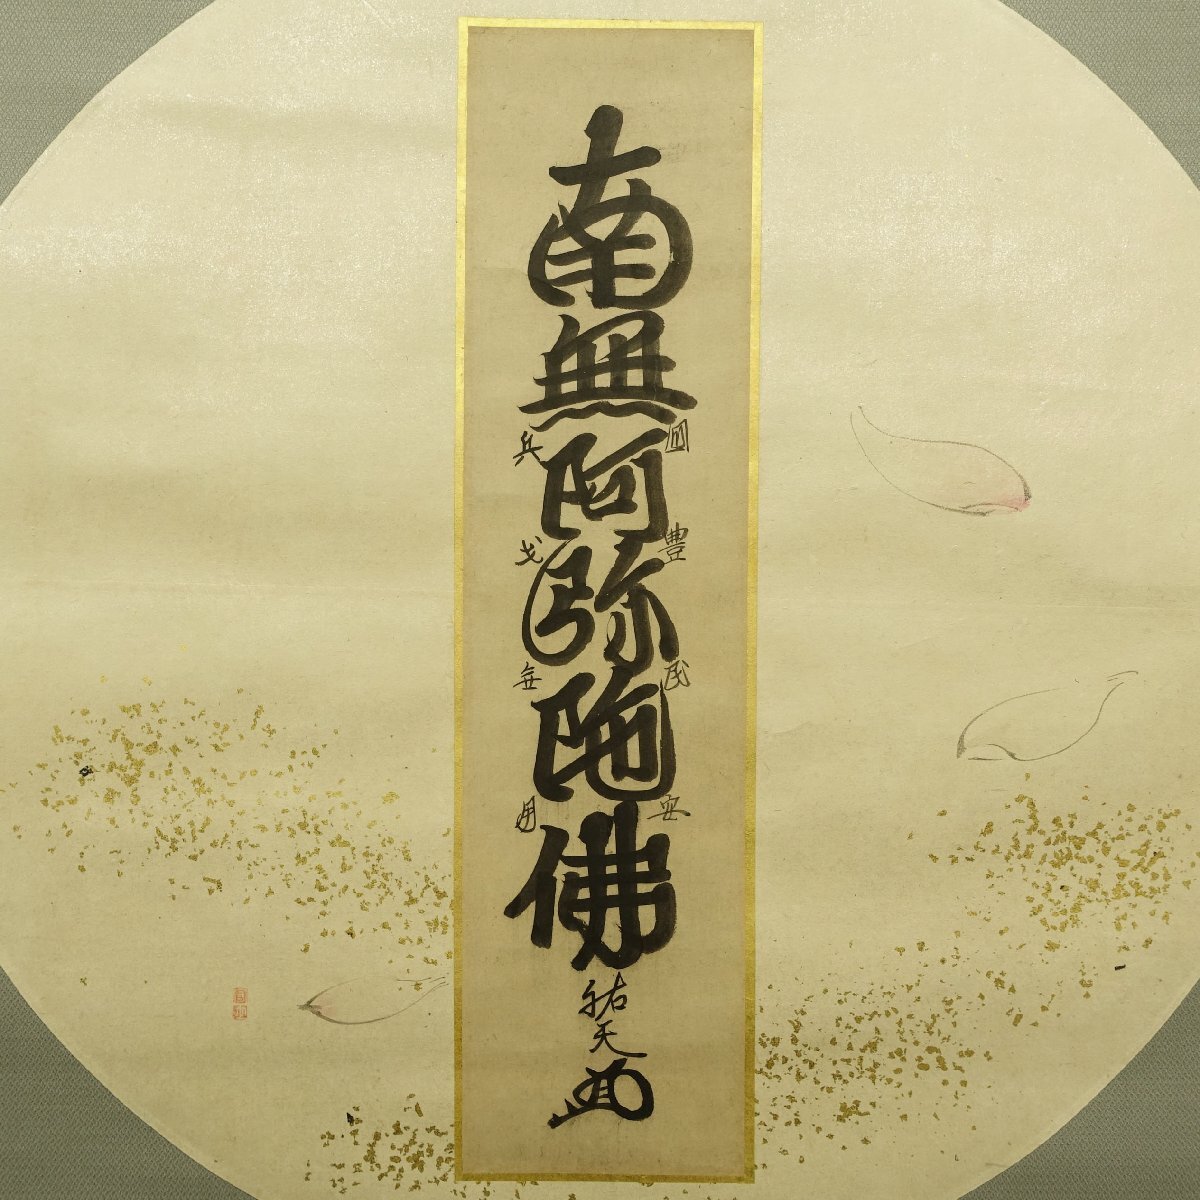 南無阿弥陀佛
國豊民安
兵戈無用
祐天